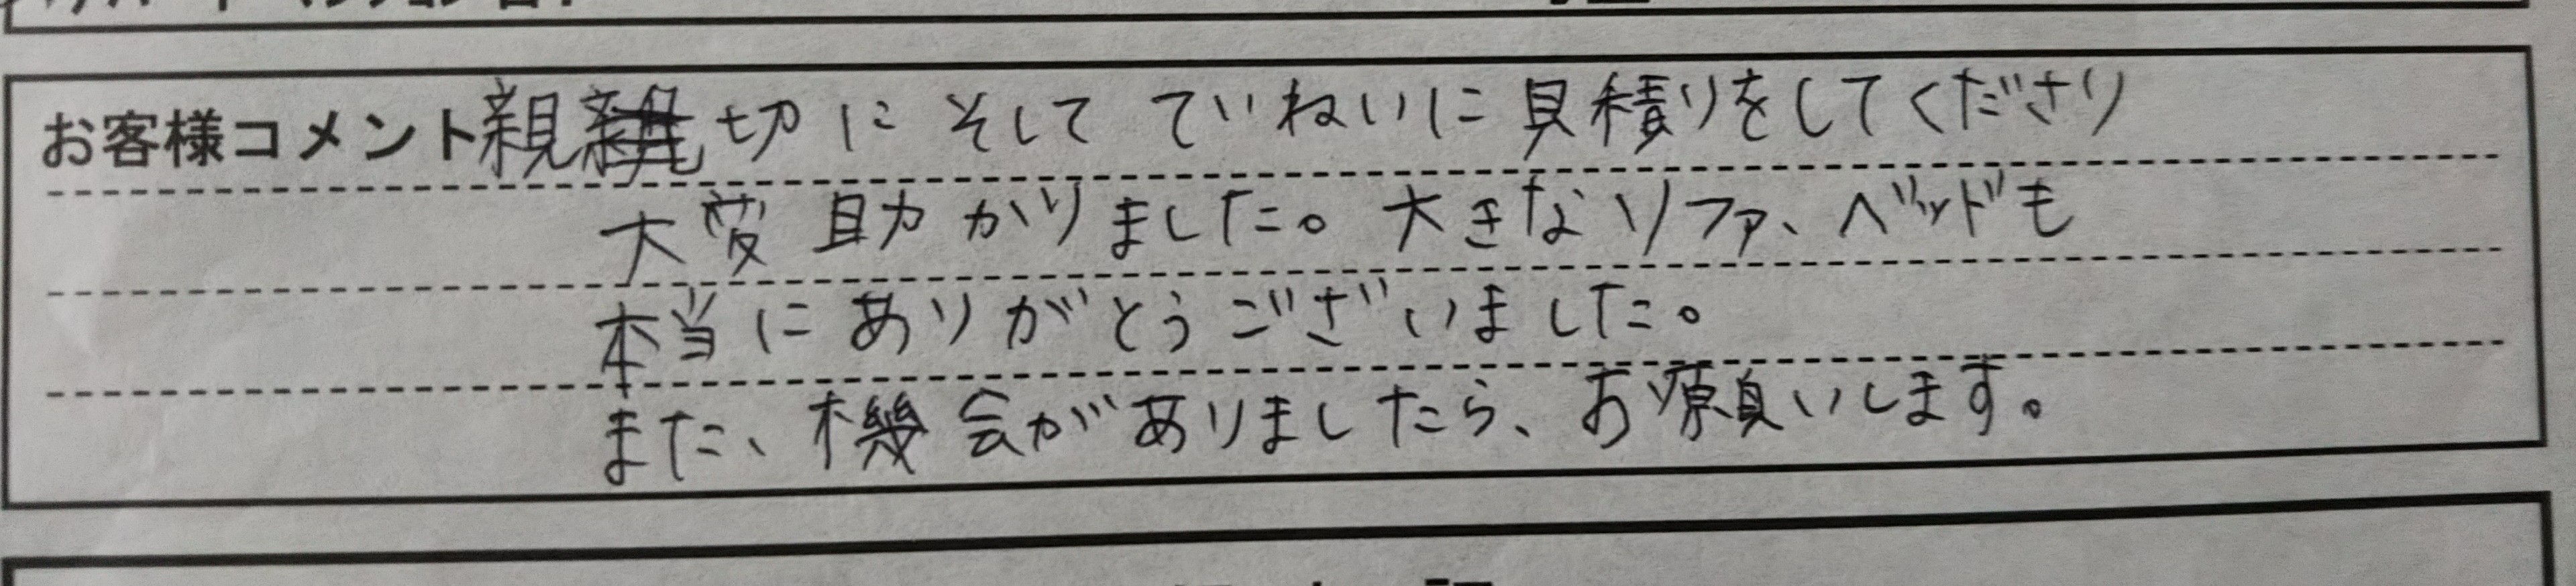 お客様コメント親切にそしてていねいに見積りをしてくださり
大変助かりました。大きなソファ、ベッドも
本当にありがとうございました。
また、機会がありましたら、お願いします。